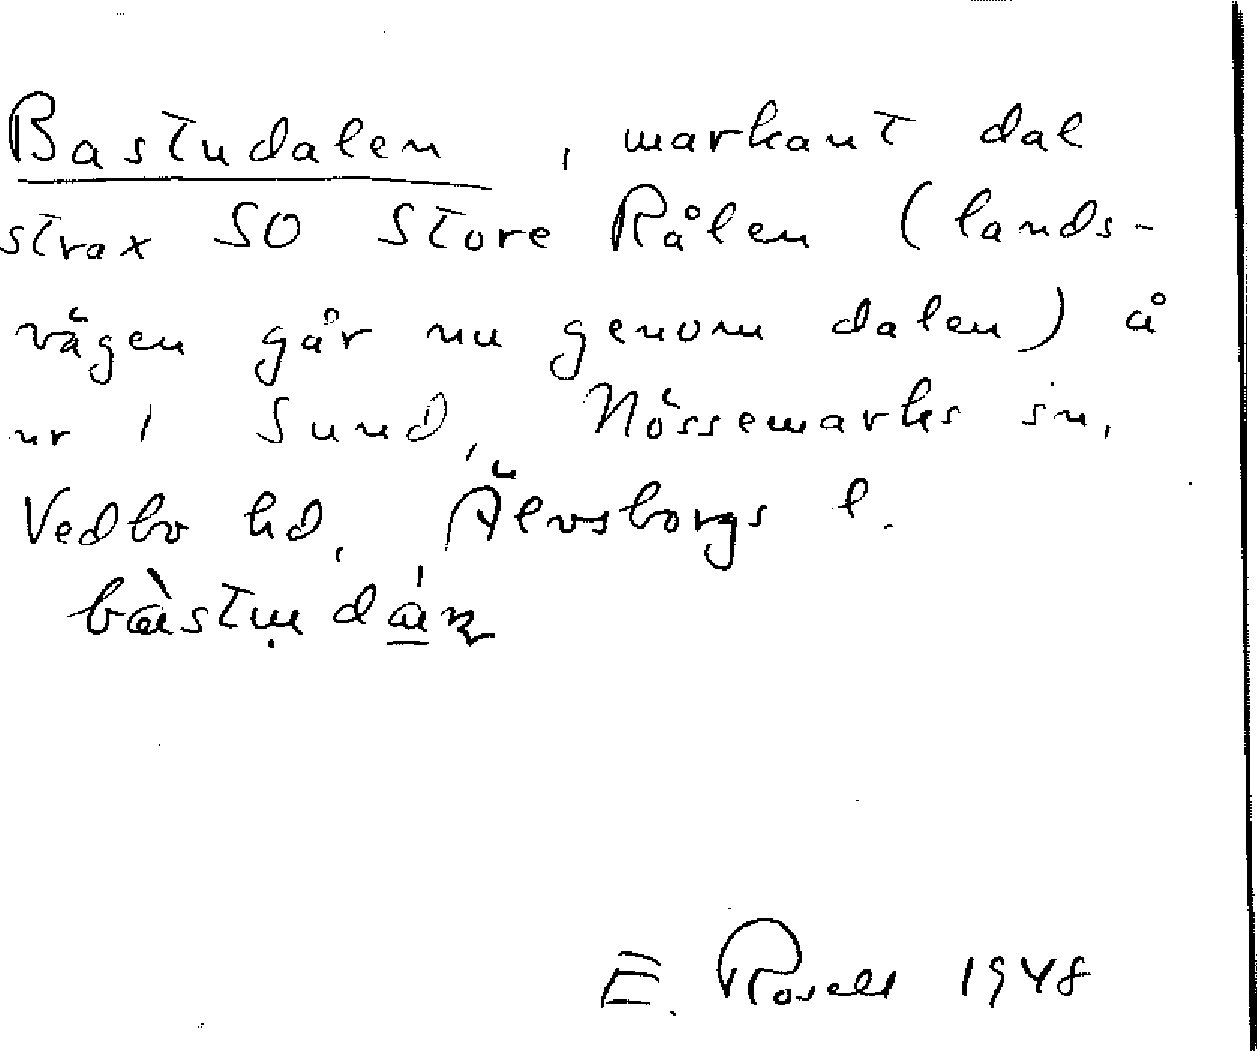 Bastudalen, markant dal
strax SO Store Rålen (lands-
vägen går nu genom dalen) å
nr 1 Sund, Nössemarks sn,
Vedbo hd, Älvsborgs l.
E. Rosell 1948